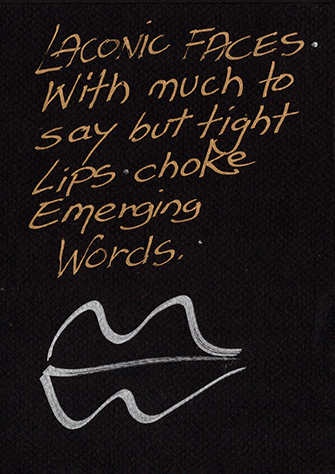 LACONIC FACES.
With much to
say but tight
Lips choke
Emerging
Words.